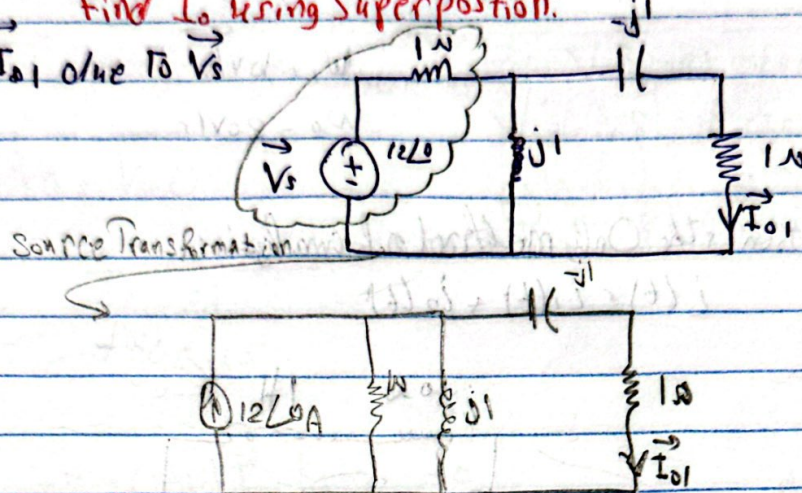 Find Io using Superpostion.
Io1 due To Vs
1Ω
-j1
12∠0
Vs
j1
1Ω
Io1
Source Transformation
-j1
12∠0A
1Ω
j1
1Ω
Io1